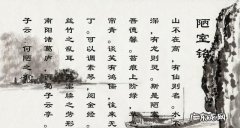 陋室铭
山不在高，有仙则名。水
深，有龙则灵。斯是陋
吾德馨。苔痕上阶绿，
帘青。谈笑有鸿儒，往来无
丁。可以调素琴，阅金经
丝竹之乱耳，无案牍之劳形
南阳诸葛庐，西蜀子云亭
子云：何陋之有